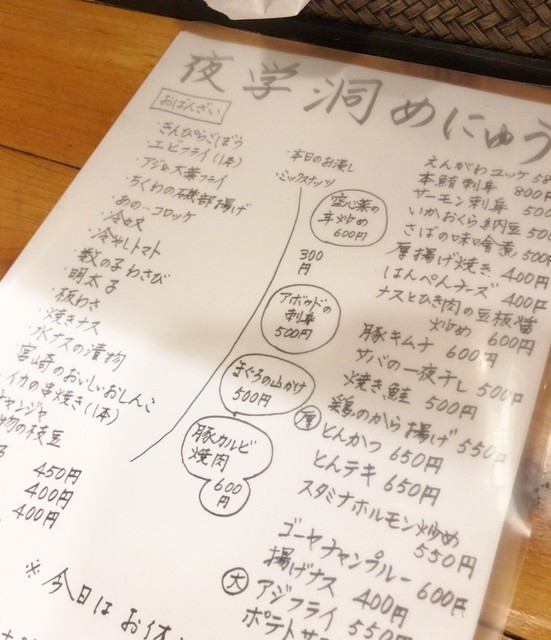 夜学洞めにゅう
おばんざい
・きんぴらごぼう
・エビフライ(1本)
・アジの大葉フライ
・ちくわの磯部揚げ
・あのーコロッケ
・冷奴
・冷やしトマト
・数の子わさび
・明太子
・板わさ
・焼きナス
・水ナスの漬物
宮崎のおいしいおしんこ
イカの串焼き(1本)
チャンジャ
物の枝豆
450円
400円
400円
※今日はお休
・本日のお浸し
・ミックスナッツ
300
円
空心菜の
辛炒め
600円
アボカドの
刺身
500円
まぐろの山かけ
500円
豚カルビ
焼肉
600
円
えんがわユッケ 58
本鮪刺身 800円
サーモン刺身 500
いかおくら納豆 500
さばの味噌煮 500円
厚揚げ焼き 400円
はんぺんチーズ 400円
ナスとひき肉の豆板醤
炒め 600円
豚キムチ 600円
サバの一夜干し 500円
焼き鮭 500円
鶏のから揚げ 550円
厚 とんかつ 650円
とんテキ 650円
スタミナホルモン炒め
550円
ゴーヤチャンプルー 600円
揚げナス 400円
大 アジフライ 550円
ポテトサ